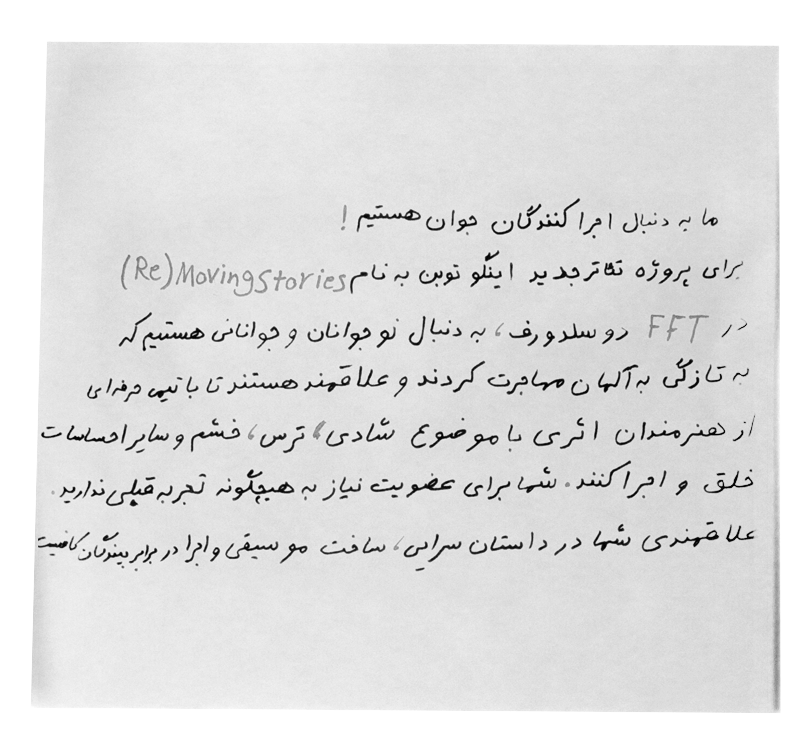 ما به دنبال اجرا کنندگان جوان هستیم!
برای پروژه تئاتر جدید اینگو توبن به نام (Re)MovingStories
در FFT دوسلدورف، به دنبال نوجوانان و جوانانی هستیم که
به تازگی به آلمان مهاجرت کردند و علاقمند هستند تا با تیمی حرفه‌ای
از هنرمندان اثری با موضوع شادی، ترس، خشم و سایر احساسات
خلق و اجرا کنند. شما برای عضویت نیاز به هیچگونه تجربه قبلی ندارید.
علاقمندی شما در داستان سرایی، ساخت موسیقی و اجرا در برابر بینندگان کافیست